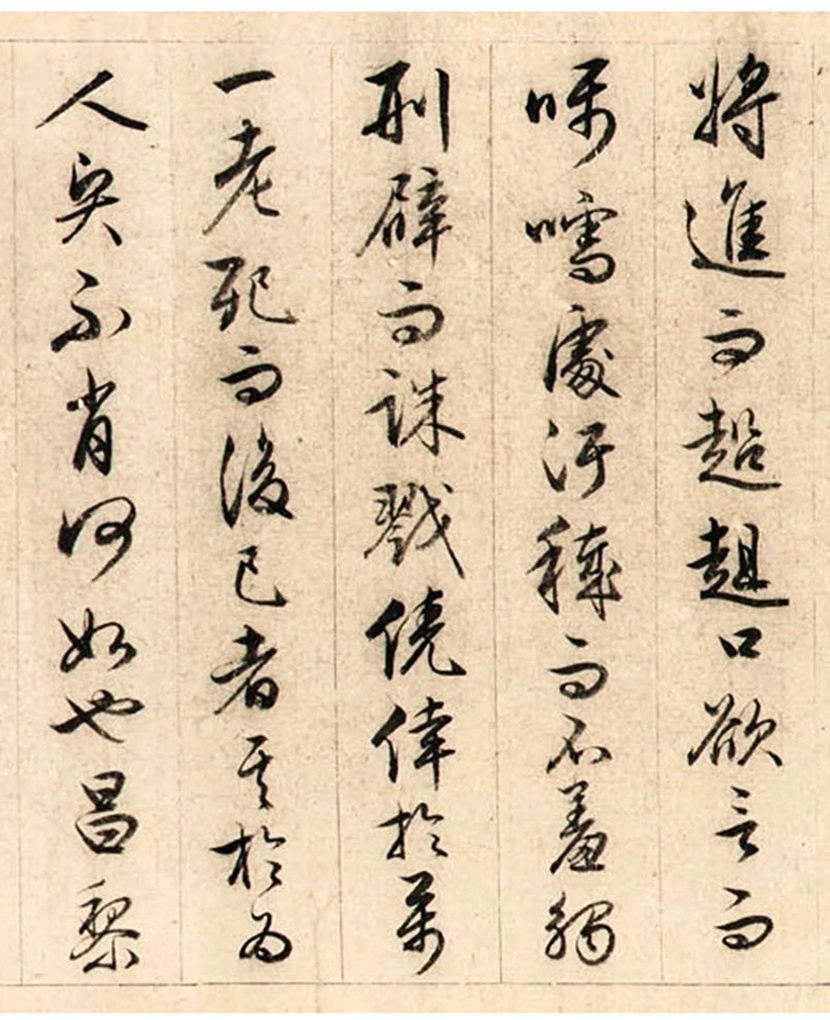 將進而趑趄口欲言而
囁嚅處汙穢而不羞觸
刑辟而誅戮僥倖於萬
一老死而後已者其於為
人賢不肖何如也昌黎